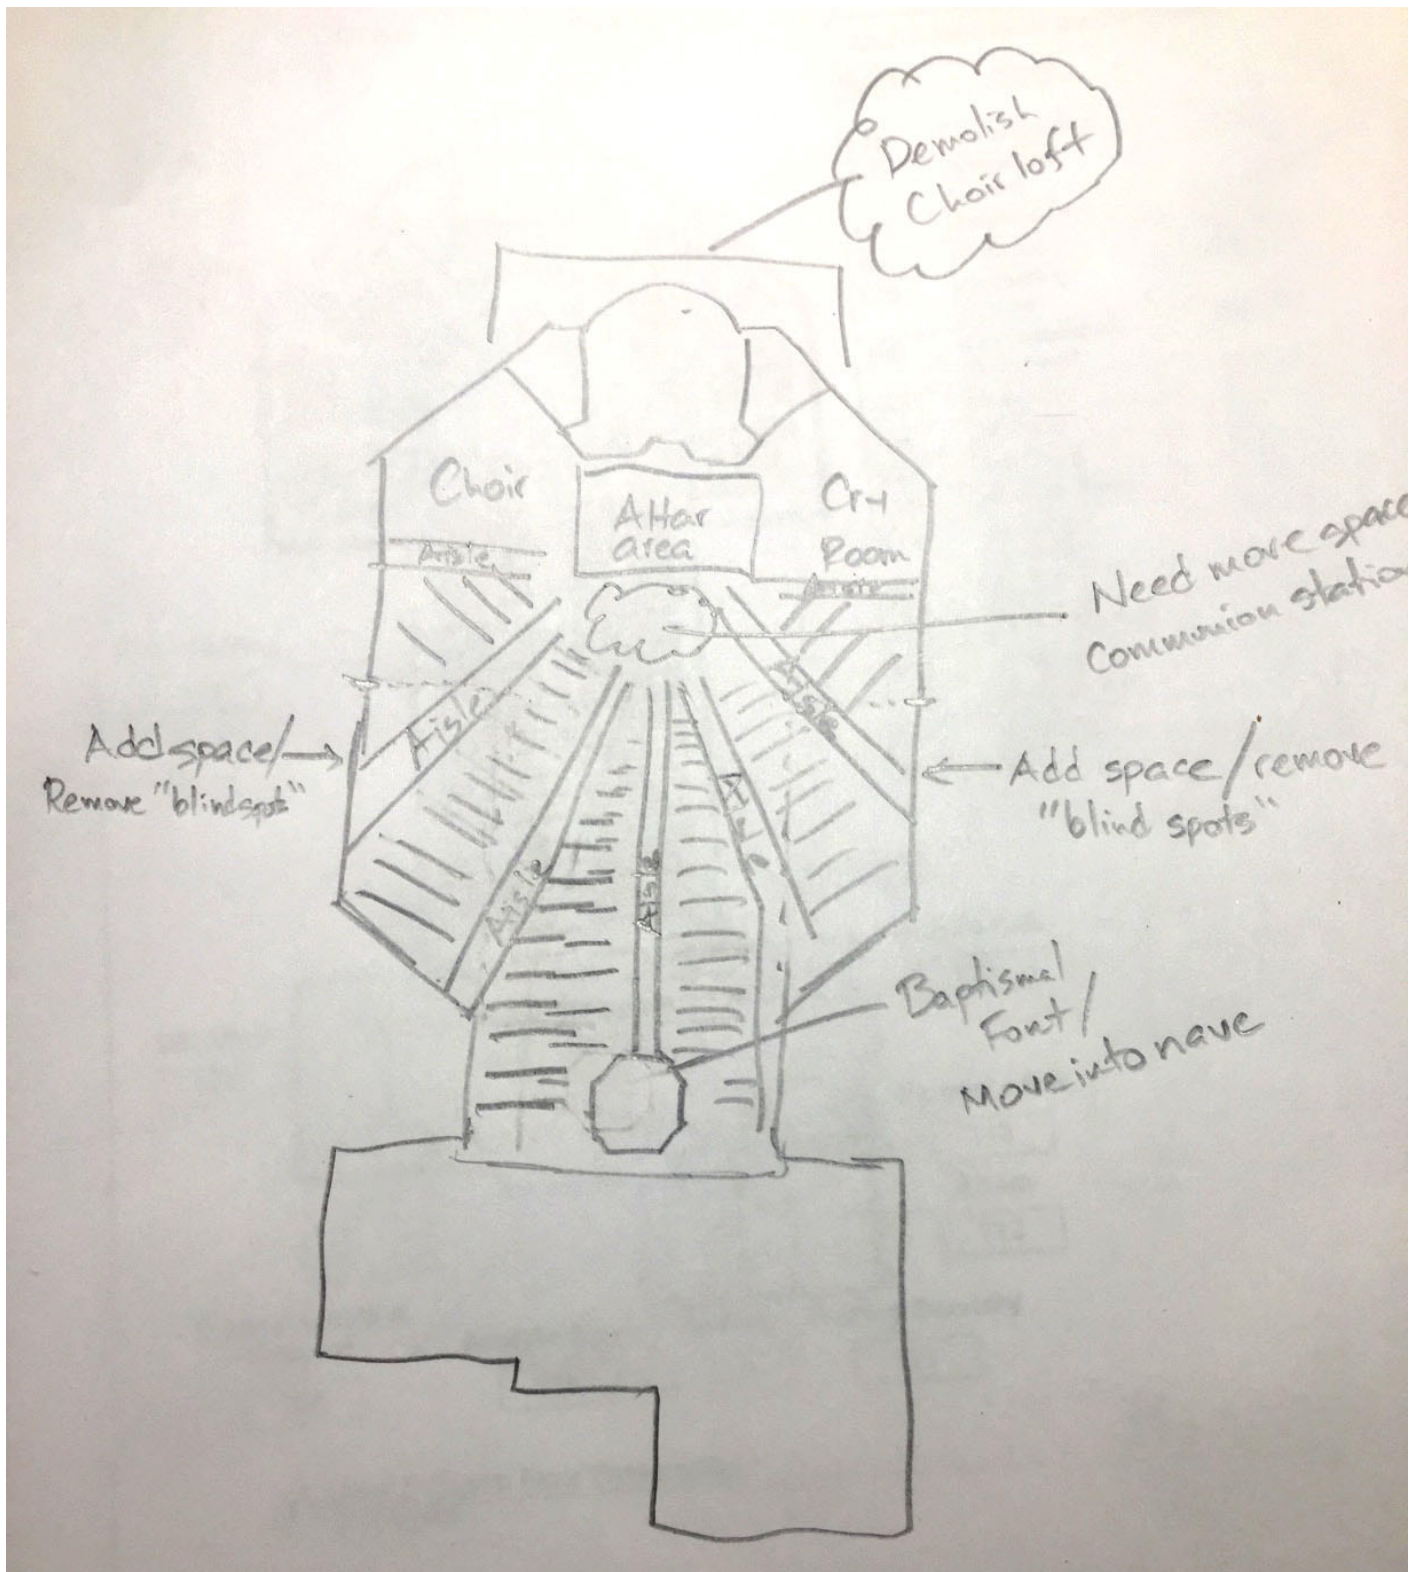 Demolish
Choir loft
Choir
Altar
area
Cry
Room
Aisle
Aisle
Need more space
Communion station
Aisle
Aisle
Add space/
Remove "blindspots"
Add space/remove
"blind spots"
Aisle
Aisle
Aisle
Baptismal
Font/
Move into nave